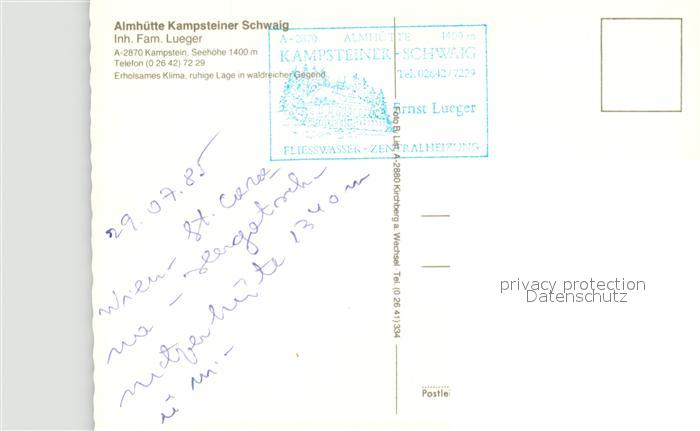 Almhütte Kampsteiner Schwaig
Inh. Fam. Lueger
A-2870 Kampstein, Seehöhe 1400 m
Telefon (0 26 42) 72 29
Erholsames Klima, ruhige Lage in waldreicher Gegend
A-2870 ALMHÜTTE 1400 m
KAMPSTEINER-SCHWAIG
Tel. 02642/7229
Ernst Lueger
FLIESSWASSER-ZENTRALHEIZUNG
Foto B. List, A-2880 Kirchberg a. Wechsel Tel. (0 26 41) 334
29.07.85
Wien - St. Coro
na -
hütte 1340 m
privacy protection
Datenschutz
Postlei